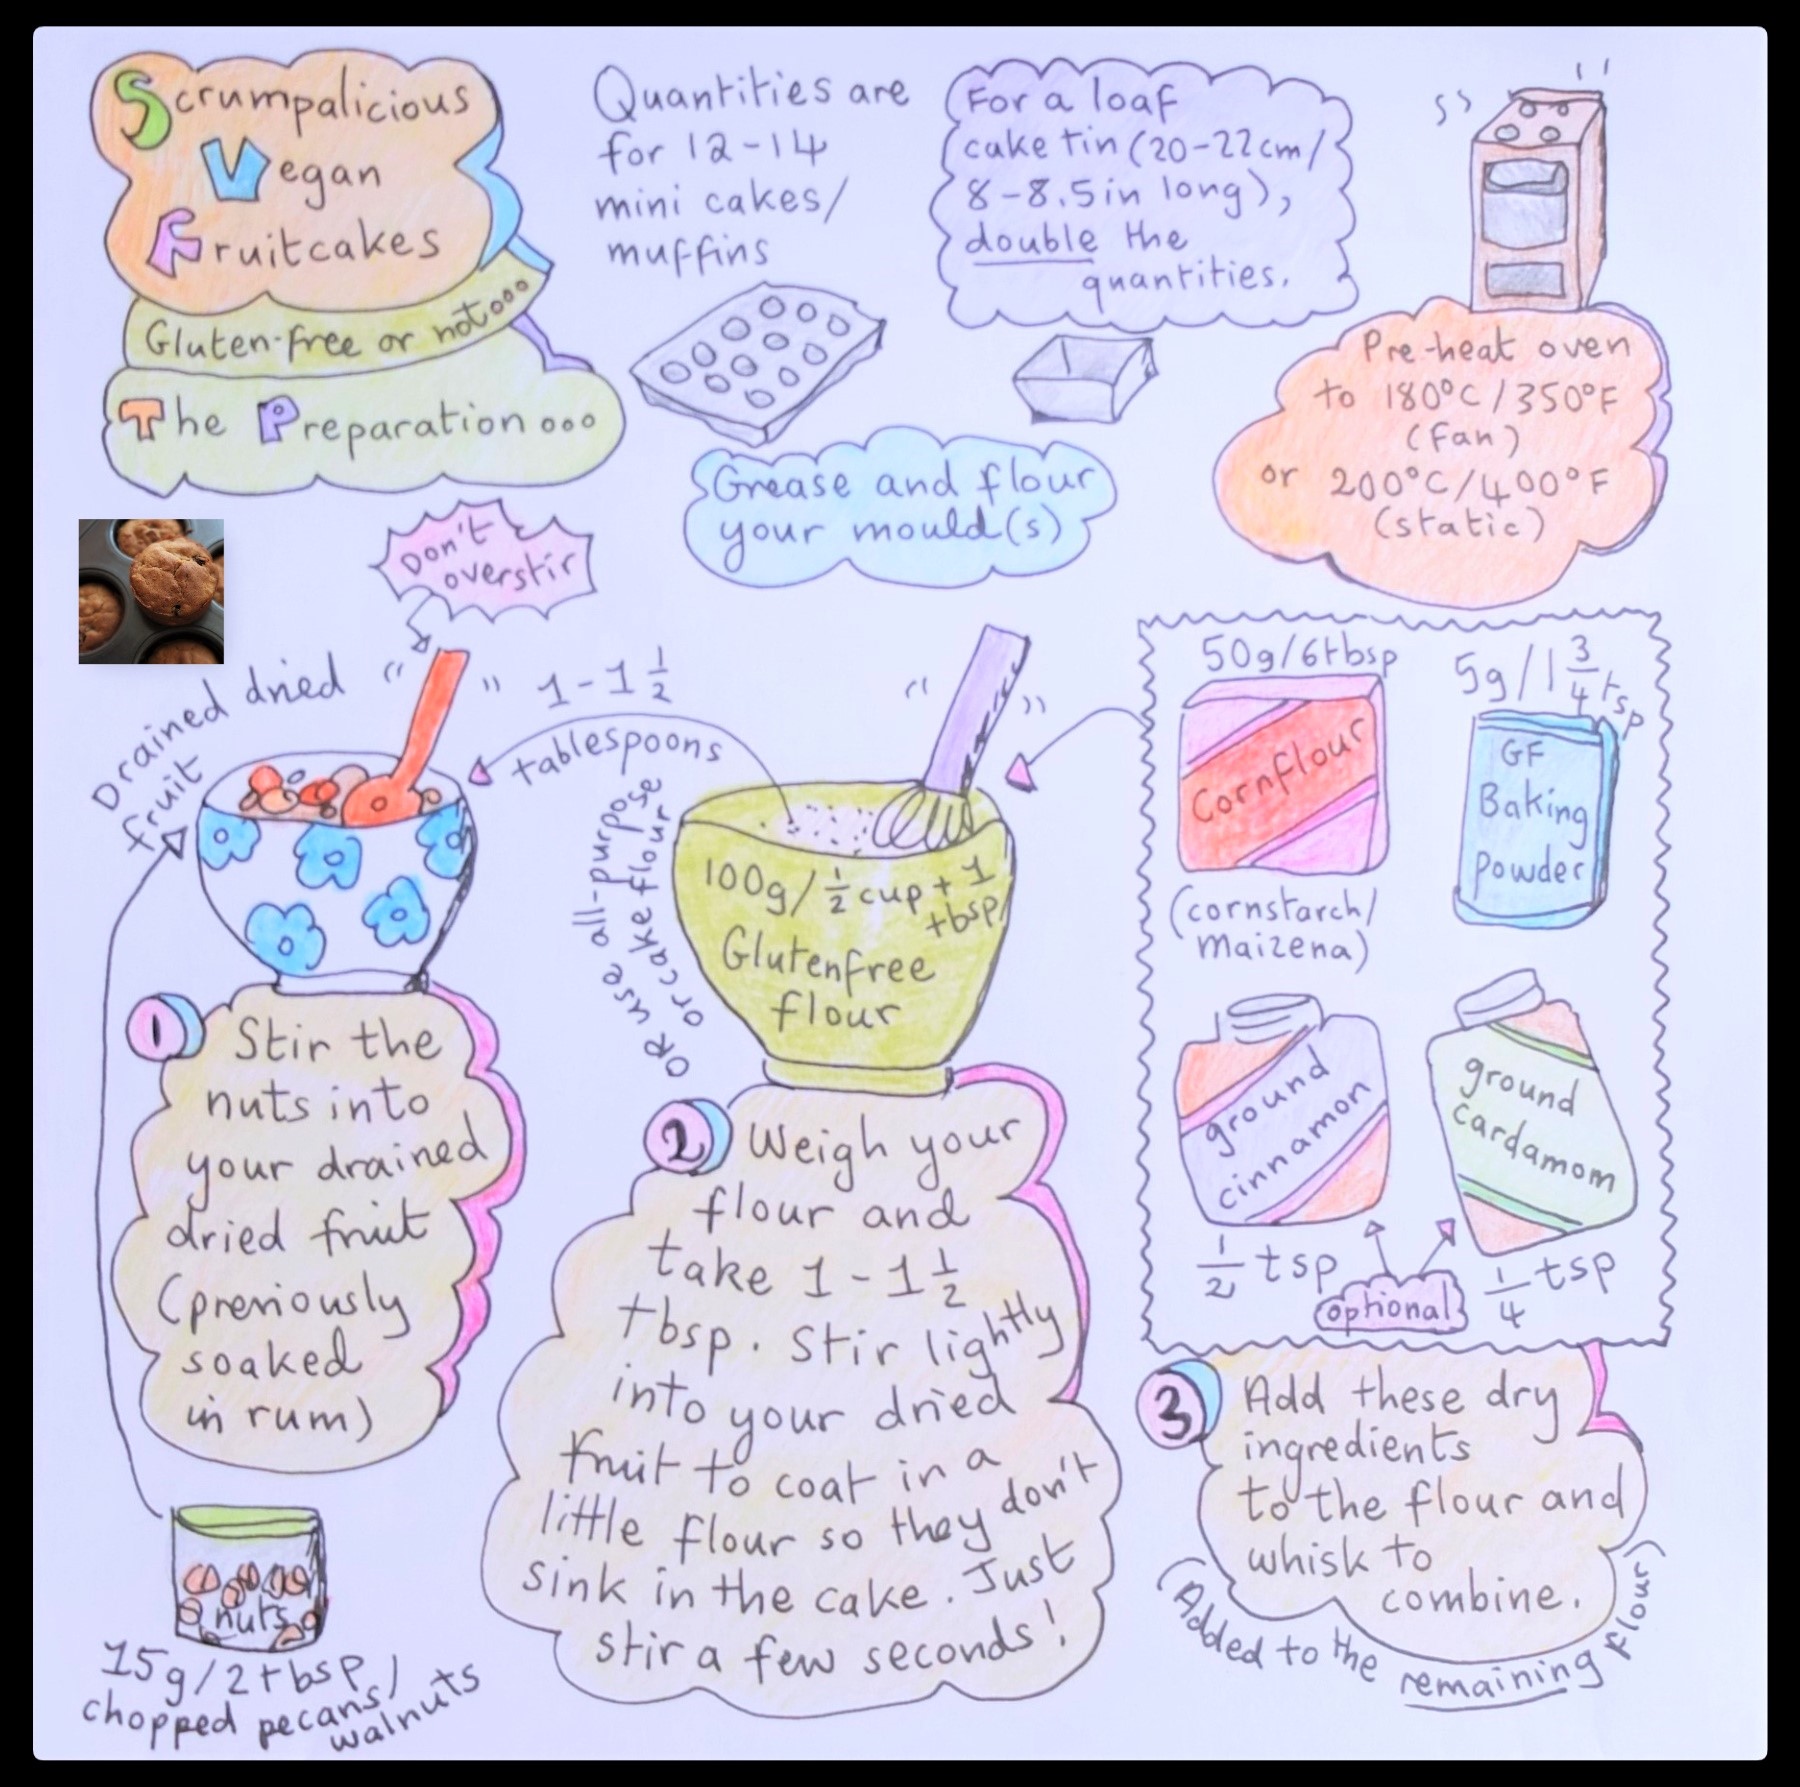 Scrumpalicious
Vegan
Fruitcakes
Gluten-free or not...
The Preparation...
Quantities are
for 12-14
mini cakes/
muffins
For a loaf
cake tin (20-22cm/
8-8.5in long),
double the
quantities.
Grease and flour
your mould(s)
Pre-heat oven
to 180°C/350°F
(fan)
or 200°C/400°F
(static)
Don't
overstir
Drained dried
fruit
1-1 1/2
tablespoons
1
Stir the
nuts into
your drained
dried fruit
(previously
soaked
in rum)
nuts
15g/2tbsp/
chopped pecans/
walnuts
OR use all-purpose
or cake flour
100g/1/2 cup + 1
tbsp
Glutenfree
flour
2
Weigh your
flour and
take 1-1 1/2
tbsp. Stir lightly
into your dried
fruit to coat in a
little flour so they don't
sink in the cake. Just
stir a few seconds!
50g/6tbsp
Cornflour
(cornstarch/
maizena)
5g/1 3/4 tsp
GF
Baking
Powder
ground
cinnamon
1/2 tsp
ground
cardamom
1/4 tsp
optional
3
Add these dry
ingredients
to the flour and
whisk to
combine.
(Added to the remaining flour)